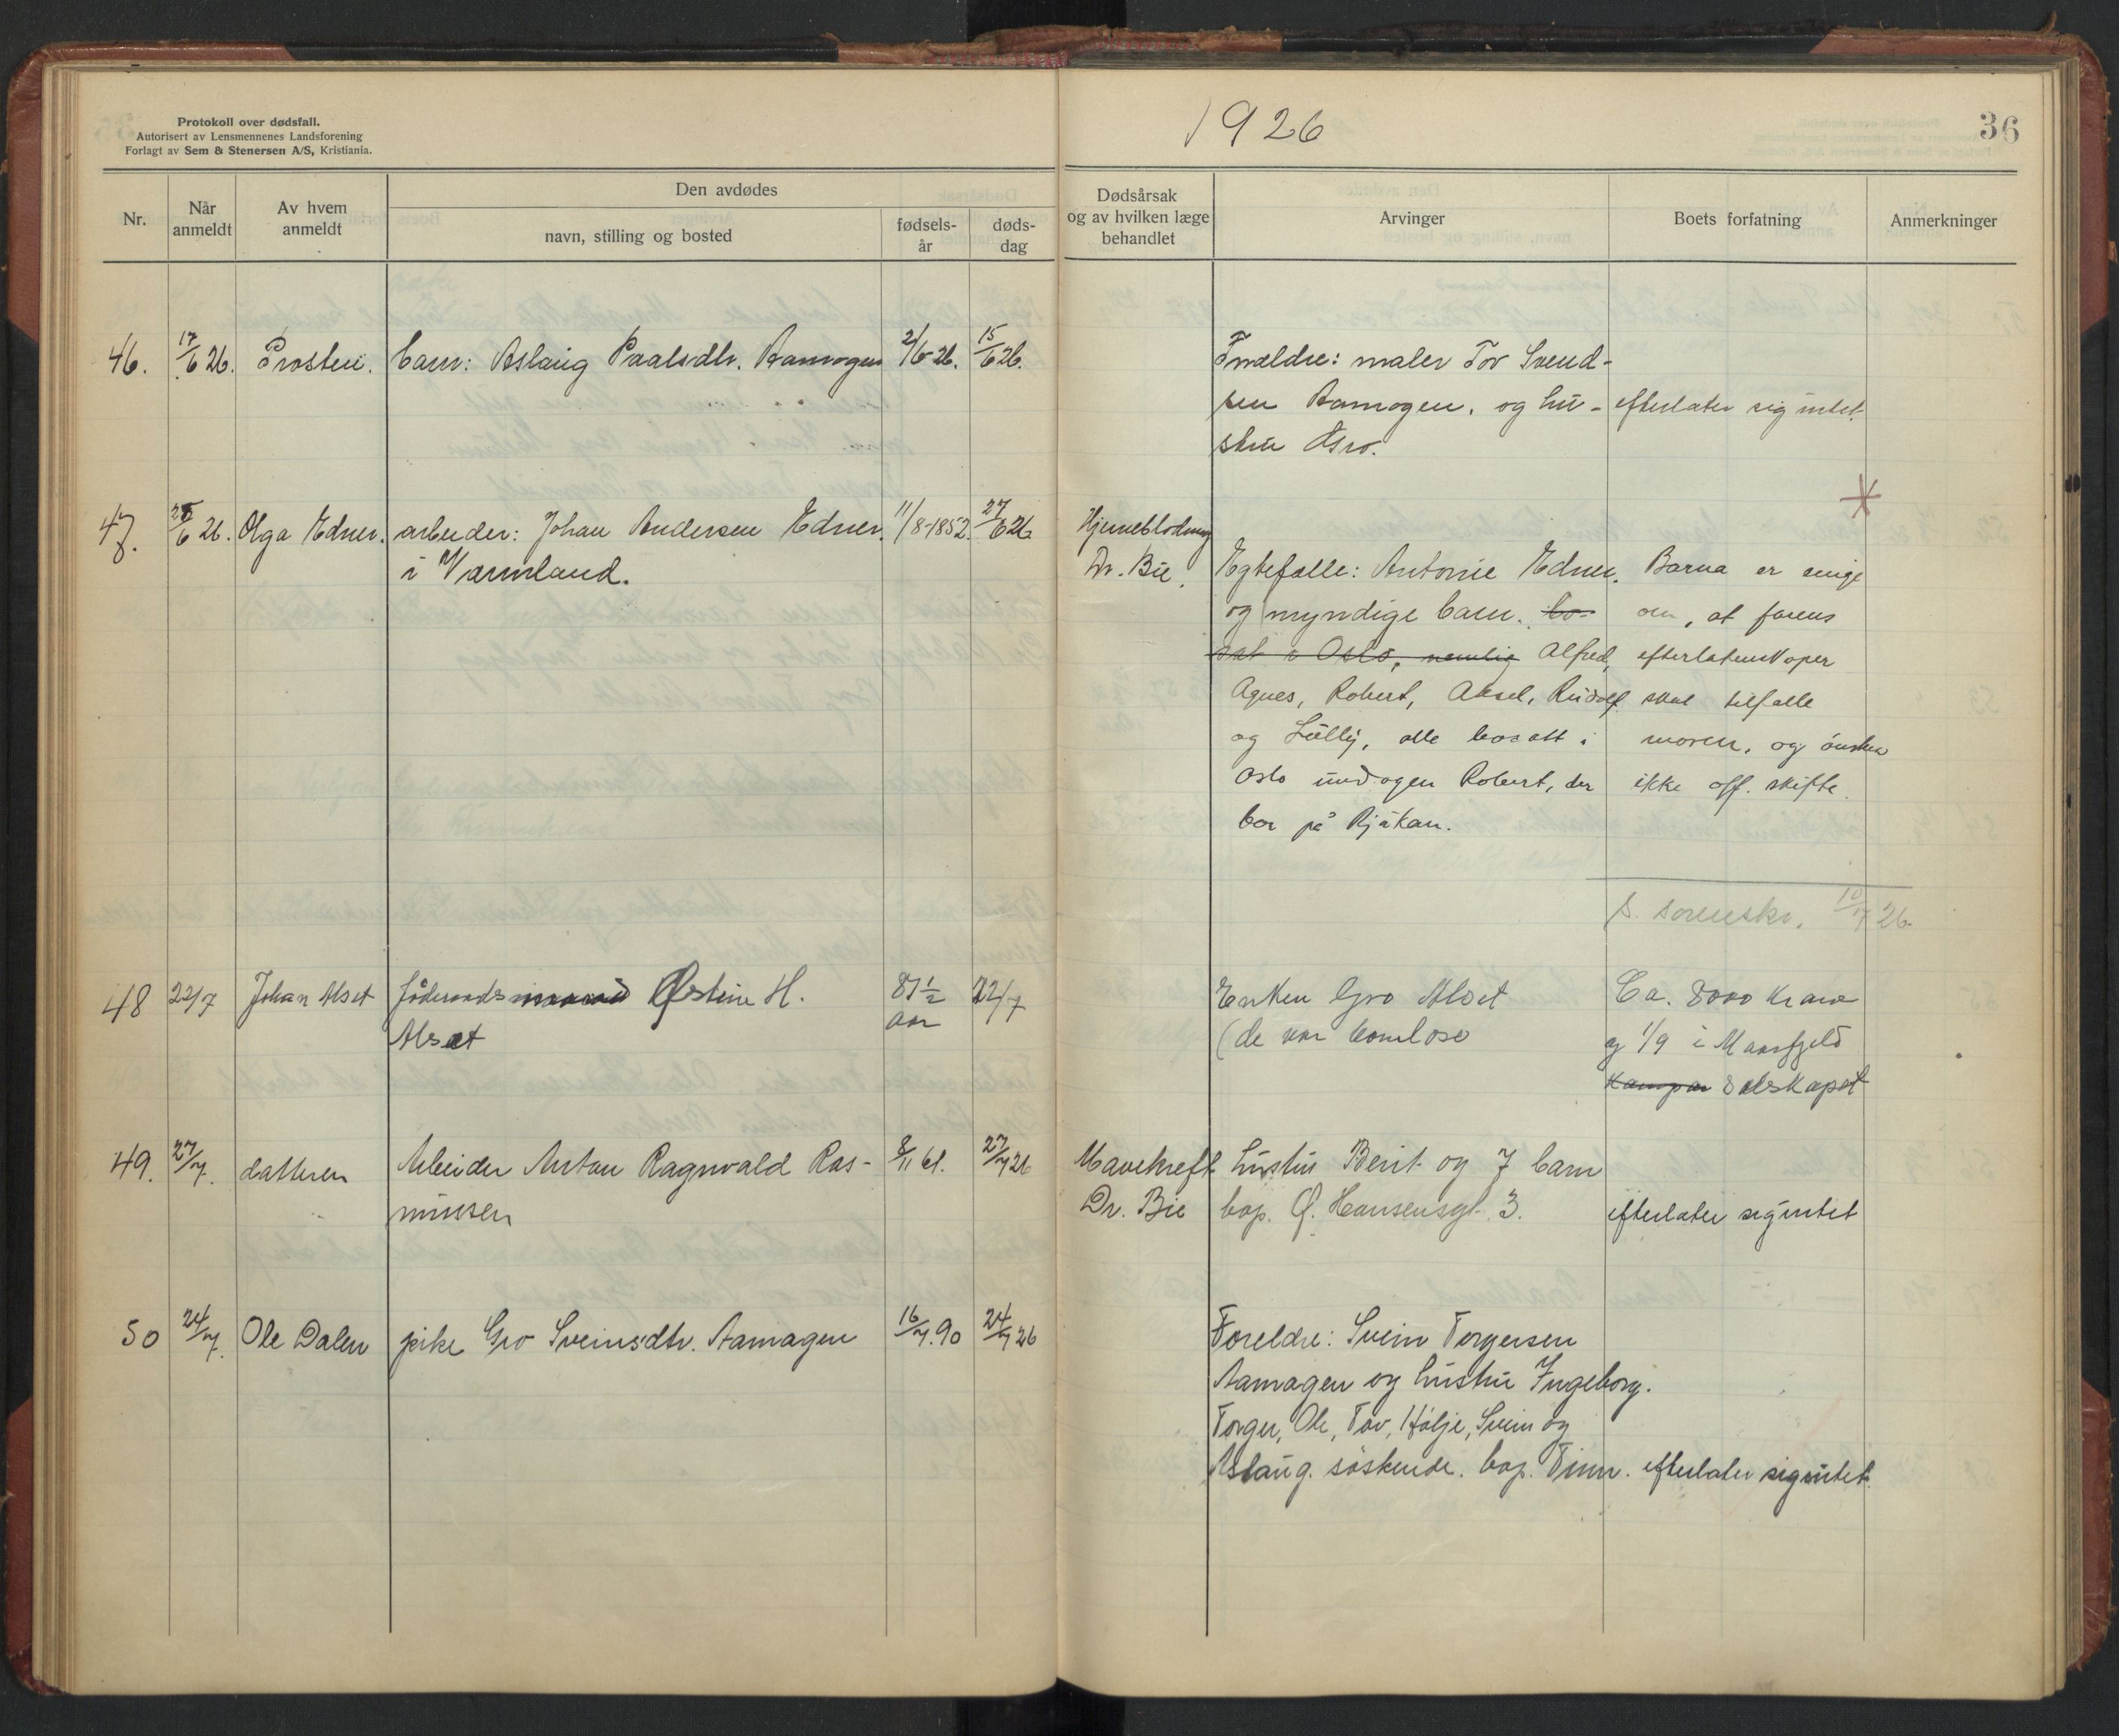 Protokoll over dødsfall.
Autorisert av Lensmennenes Landsforening
Forlagt av Sem & Stenersen A/S, Kristiania.
1926
36
Nr.
Når anmeldt
Av hvem anmeldt
Den avdødes
navn, stilling og bosted
fødsels-år
døds-dag
Dødsårsak og av hvilken læge behandlet
Arvinger
Boets forfatning
Anmerkninger
46. 17/6 26. Prosten. barn: Aslaug Paalsdtr. Aamogen 2/6 26. 15/6 26.
Forældre: maler Tov Svend-
sen Aamogen. og hu-
stru Gro.
efterlater sig intet.
47. 6 26. Olga Edner. arbeider: Johan Andersen Edner. 11/8-1852. 27/6 26
i Värmland.
Hjerneblødning
Dr. Bie.
Egtefælle: Antonie Edner.
og myndige barn. bo-
sat i Oslo, nemlig Alfred,
Agnes, Robert, Aksel, Rudolf
og Lully, alle bosatt i
Oslo undtagen Robert, der
bor på Rjukan.
Barna er enige
om, at farens
efterlatenskaper
skal tilfalle
moren, og ønsker
ikke off. skifte.
S. sorenskr. 10/7 26.
48 22/7 Johan Alset Føderaadsmand Østein H. 81 1/2 22/7
Alset aar
Enken Gro Alset
(de var barnløse
Ca. 8000 kroner
og 1/9 i Maarfjeld
Kompan selskapet
49. 27/7. datteren Arbeider Anton Ragnvald Ras- 8/11 61. 27/7 26
mussen
Mavekreft
Dr. Bie
hustru Berit og 7 barn
bop. Ø. Hansensgt. 3.
efterlater sig intet
50 24/7. Ole Dalen pike Gro Sveinsdtr. Aamagen 16/7. 90 24/7 26
Foreldre: Svein Torgersen
Aamagen og hustru Ingeborg.
Torger, Ole, Tov, Hølje, Svein og
Aslaug. søskende. bop. Tinn. efterlater sig intet.